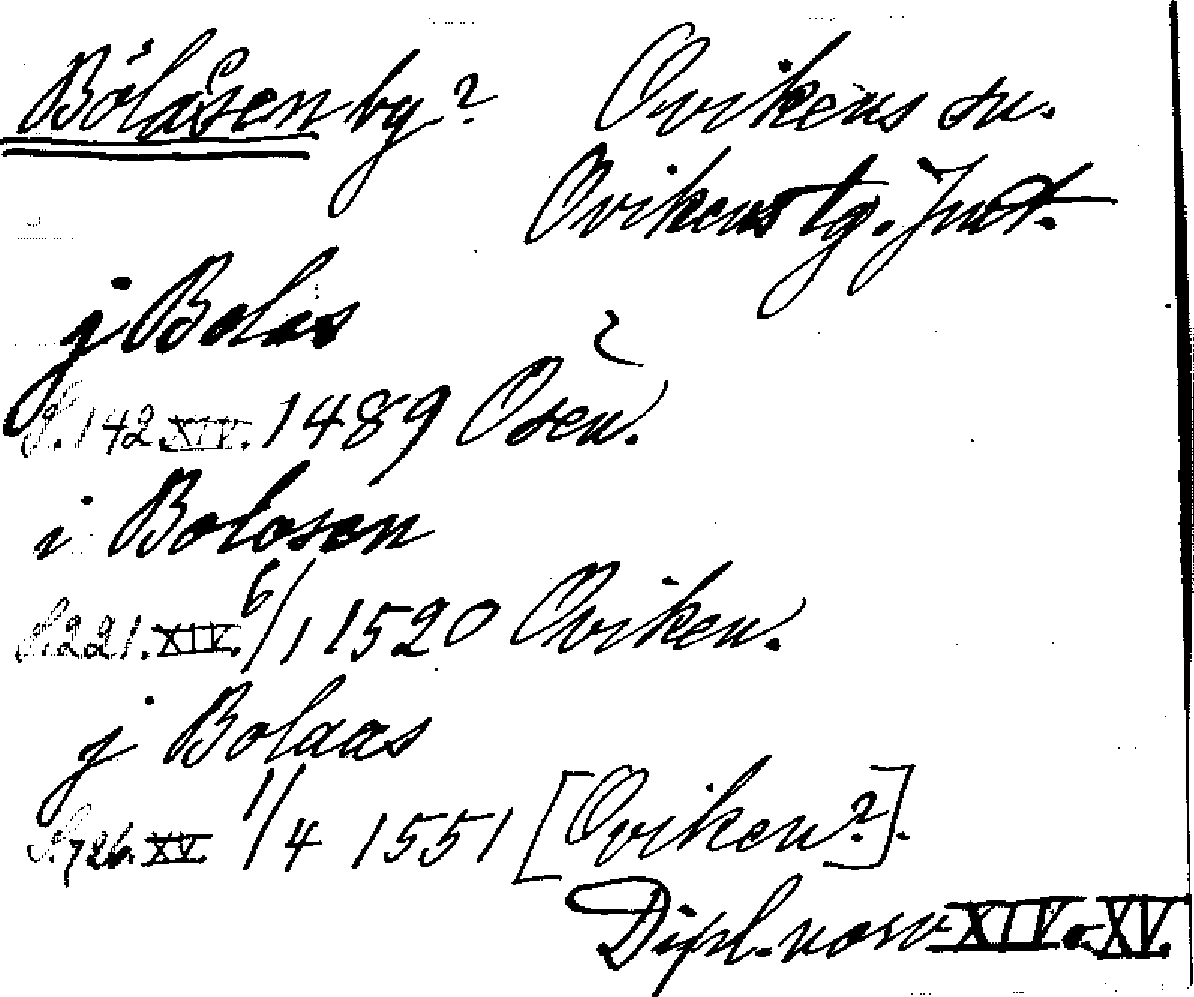 Bölåsen by? Ovikens sn.
Ovikens tg. Jmt.
j Bolas
S. 142 XIV. 1489 Osen. ?
i Bolosen
S. 221. XIV. 6/1 1520 Oviken.
j Bolaas
S. 726. XV. 1/4 1551 [Oviken?].
Dipl. norv XIV o XV.